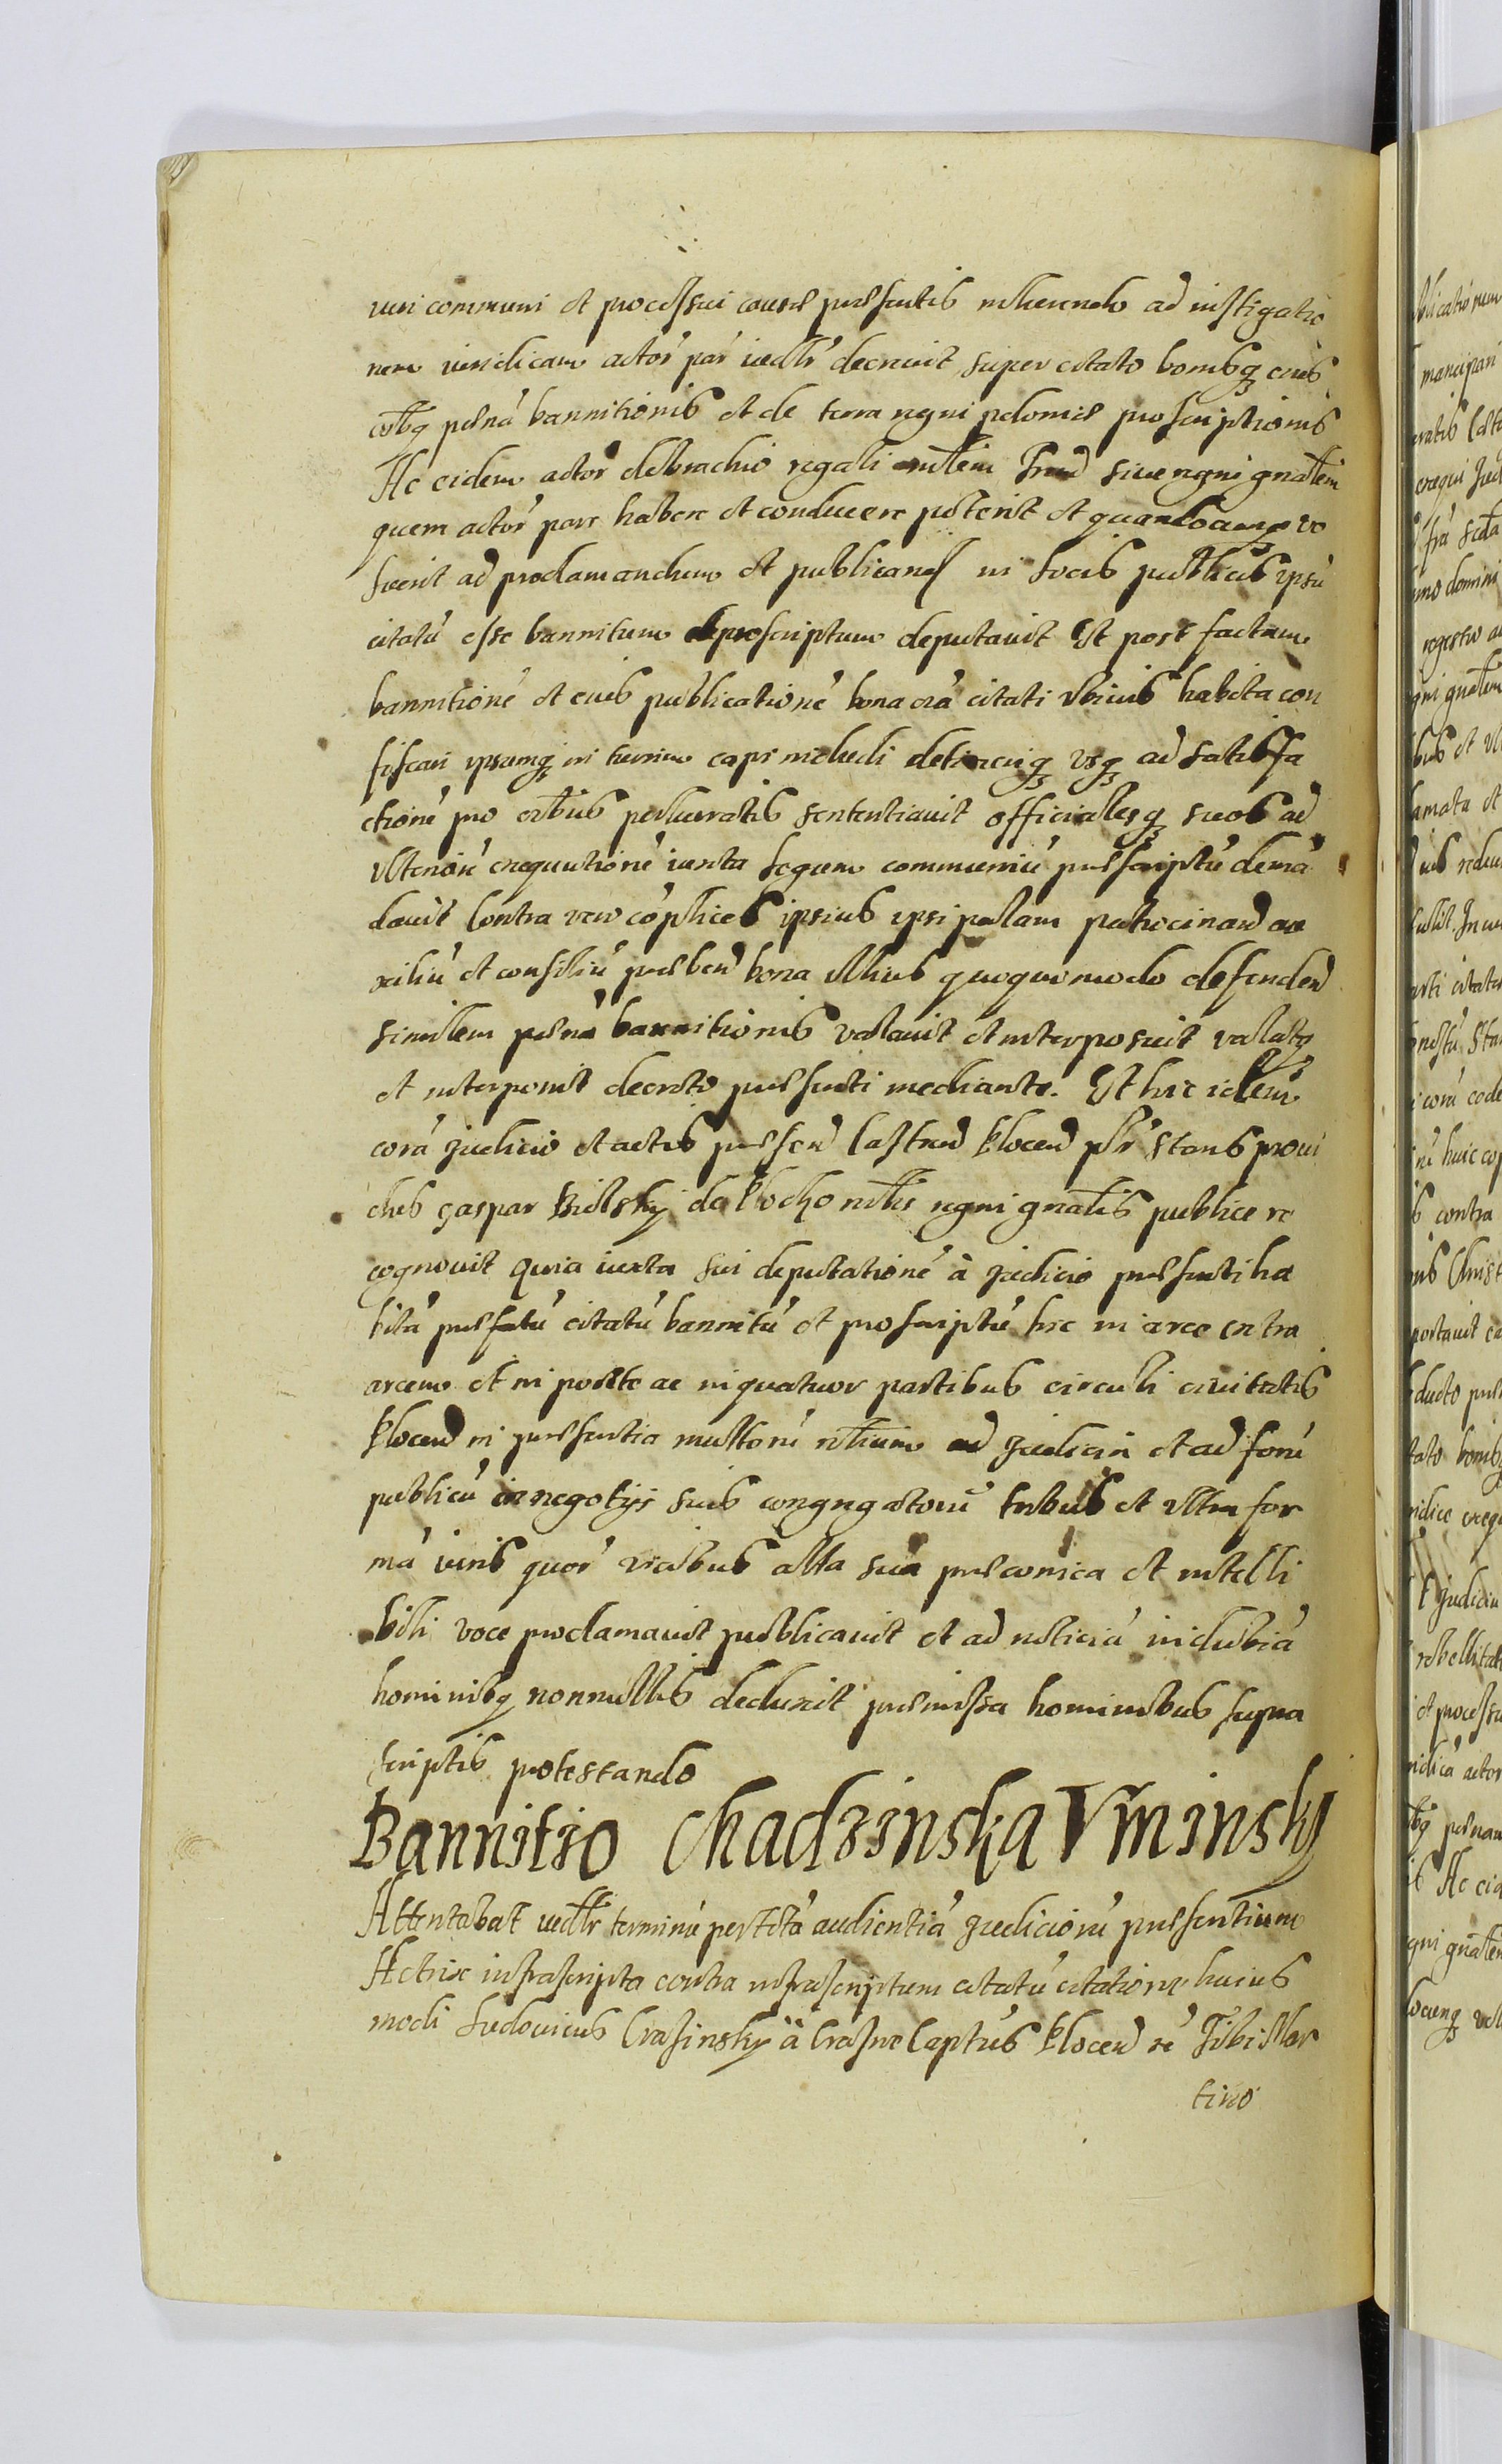 iuri communi et processui causæ præsentis inhærendo ad instigatio
nem iuridicam actor' par' iudlr' decrevit super citato bonisq3 eius
oibq pænā bannitionis et de terra regni poloniæ proscriptionis
Ac eidem actor' de brachio regali mlem Trnd siue regni gnalem
quem actor' pars habere et conducere poterit et quandocunq3 vo
luerit ad proclamandum et publicand in locis publicis ipsū
citatū esse bannitum proscriptum deputavit Et post factam
bannitionē et eius publicationē bona oīa citati vbiuis habita con
fiscari ipsumq3 in turrim capi includi detineriq3 vsq3 ad satisfa
ctionē pro oibus perlucratis sententiavit officialesq3 suos ad
vlteriorē exequutionē iuxta legum communiū præscriptū demā
davit Contra vero cōplices ipsius ipsi palam patrocinand au
xiliū et consiliū præbend bona illius quoquomodo defendend
similem pænā bannitionis vallavit et interposuit vallatq3
et interponit decreto præsenti mediante. Et hic idem
corā Judicio et actis præsend Castrend Plocend plr' stans provi
dus Gaspar Bielsky de Plocko mlis regni gnalis publice re
cognovit quia iuxta sui deputationē à Judicio præsenti ha
bitā præfatū citatū bannitū et proscriptū hic in arce extra
arcem et in porta ac in quatuor partibus circuli civitatis
Plocend in præsentia multorū nlium ad Judicia et ad forū
publicū in negotijs suis congregatorū tribus et vltra for
mā iuris quor' vicibus alta sua præconica et intelli
bili voce proclamavit publicavit et ad noticiā indubiā
hominibq nonnullis deduxit præmissa hominibus supra
scriptis protestando
Bannitio Chadzinska Vminsky
Attentabat iudlr terminū pertētā audientiā Judiciorū præsentium
Actrix infrascripta contra infrascriptum citatū citatione huius
modi Ludovicus Crasinsky à Crasne Captūs Plocend Tibi Mar
tino